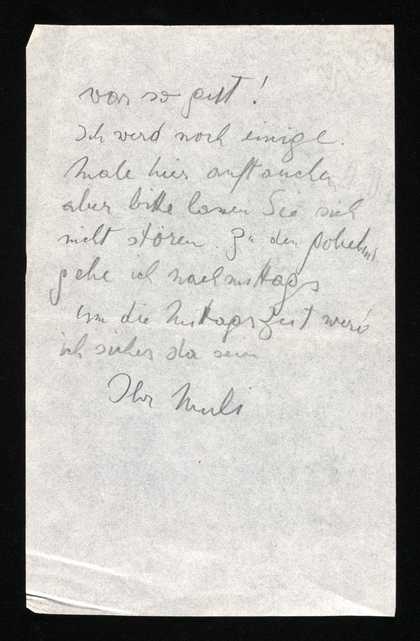 war so gut!
Ich werd noch einige
Male hier auftauchen
aber bitte lassen Sie sich
nicht stören. Zu den
gehe ich nachmittags
um die Mittagszeit werd
ich sicher da sein
Ihr